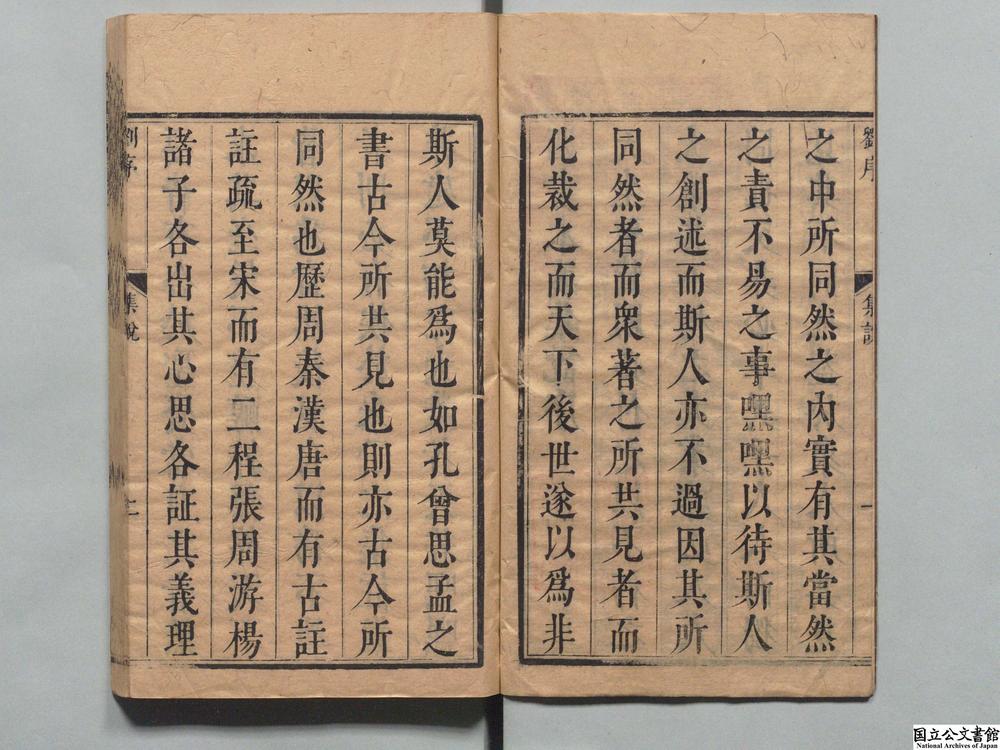 劉序
集說
一
之中所同然之內實有其當然
之責不易之事嘿嘿以待斯人
之創述而斯人亦不過因其所
同然者而衆著之所共見者而
化裁之而天下後世遂以爲非
斯人莫能爲也如孔曾思孟之
書古今所共見也則亦古今所
同然也歷周秦漢唐而有古註
註疏至宋而有二程張周游楊
諸子各出其心思各証其義理
劉序
集說
国立公文書館
National Archives of Japan